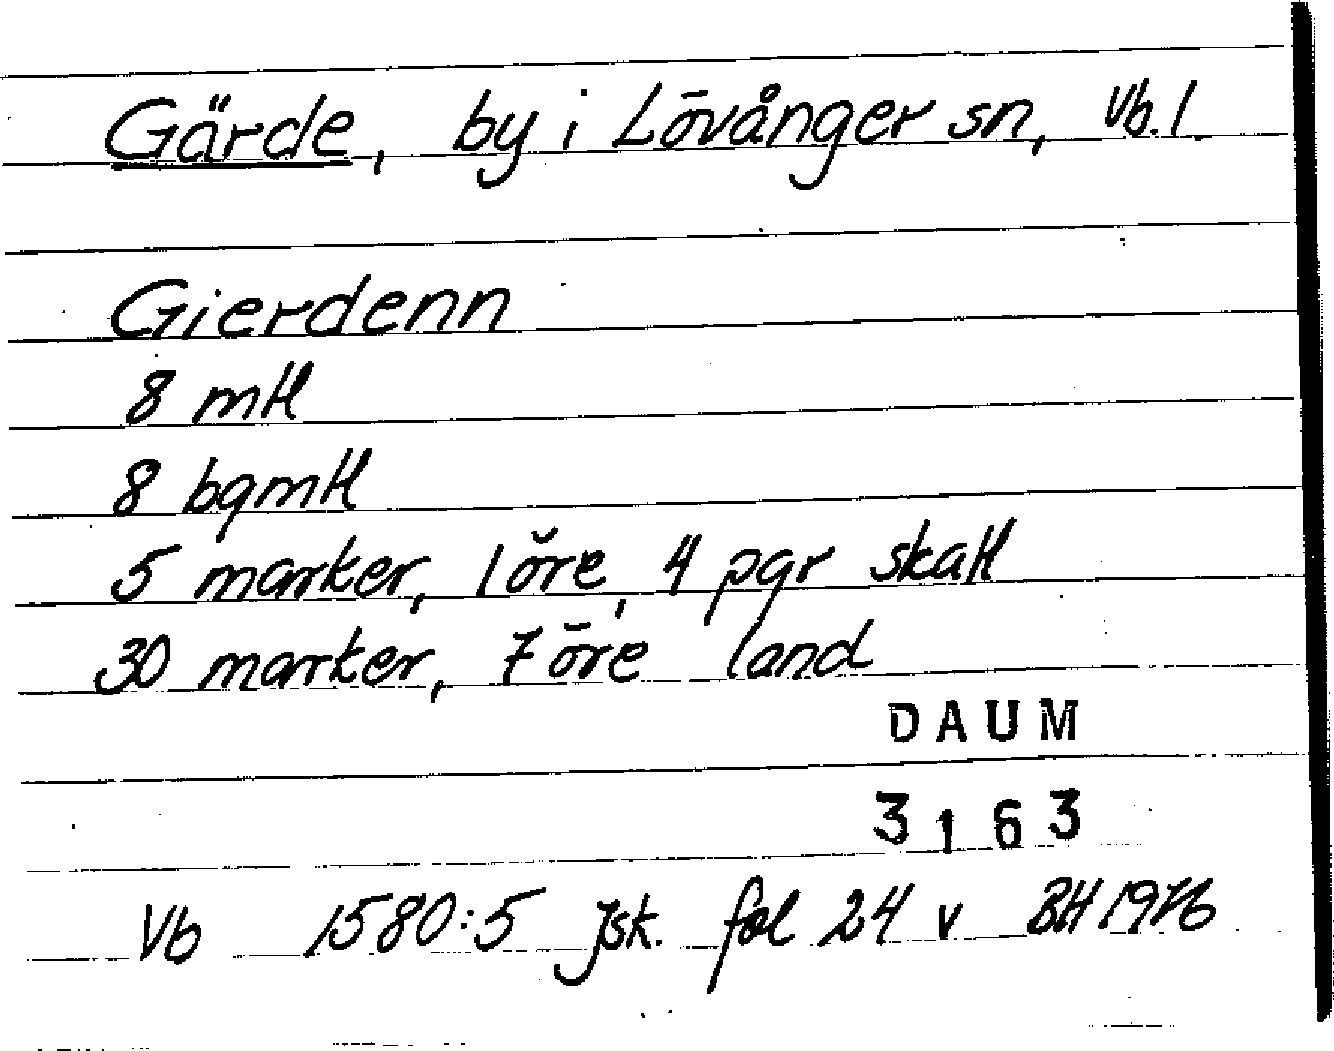 Gärde, by i Lövånger sn, Vb.l.
Gierdenn
8 mtl
8 bgmtl
5 marker, 1 öre, 4 pgr skatt
30 marker, 7 öre land
DAUM
3163
Vb 1580:5 Jsk. fol 24 v BH 1976